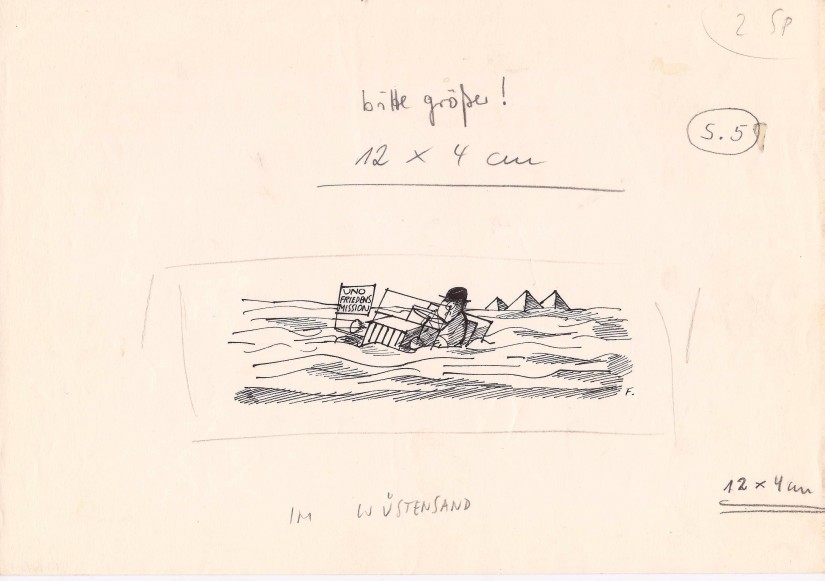 2 Sp
bitte größer!
S. 5
12 x 4 cm
UNO
FRIEDENS
MISSION
F.
12 x 4 cm
IM WÜSTENSAND